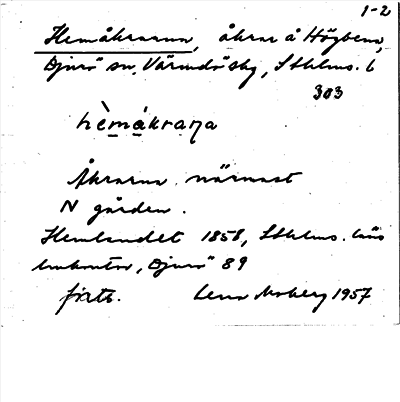 1-2
Hemåkrarna, åkrar å Högbena,
Djurö sn, Värmdö skg, Sthlms. l
303
hèmákraṇa
Åkrarna närmast
N gården.
Hemlandet 1858, Sthlms. läns
lmkontor, Djurö 89
forts. Lena Moberg 1957